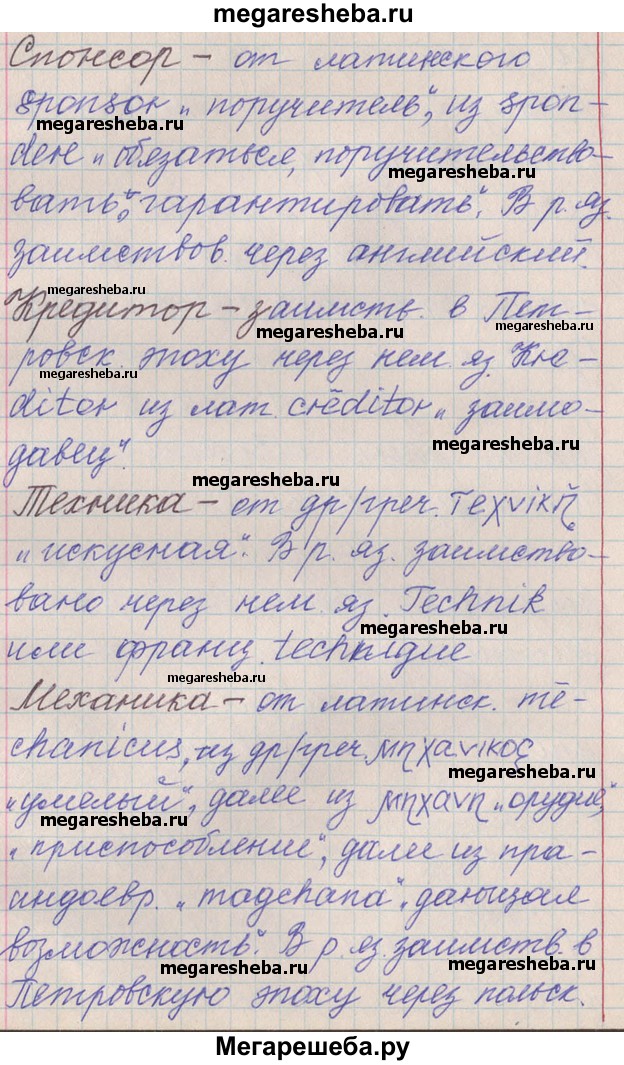 megaresheba.ru
Спонсор – от латинского
sponsor „поручитель“, из spon-
dere „обязаться, поручительство-
вать“, „гарантировать“. В р. яз.
заимствов. через английский.
Кредитор – заимств. в Пет-
ровск. эпоху через нем. яз. Kre-
ditor из лат. crēditor „заимо-
давец“.
Техника – от др/греч. τεχνική
„искусная“. В р. яз. заимство-
вано через нем. яз. Technik
или франц. technique
Механика – от латинск. mē-
chanicus, из др/греч. μηχανικος
„умелый“, далее из μηχανη „орудие“,
„приспособление“, далее из пра-
индоевр. „magchana“ „дающая
возможность“. В р. яз. заимств. в
Петровскую эпоху через польск.
Мегарешеба.ру